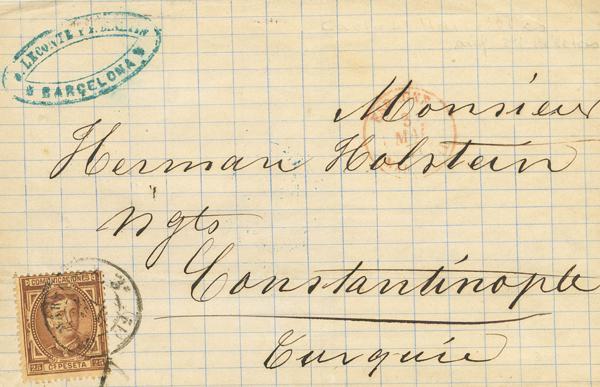 LECONTE Y
BARCELONA
Monsieur
Herman Holstein
Ngts
Constantinople
Turquie
COMUNICACIONES
25 Cs PESETA 25
5
MAI